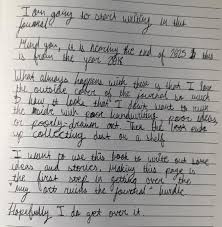 I am going to start writing in this
journal
Mind you, it is nearing the end of 2025 & this
is from the year 2018
What always happens with these is that I love
the outside cover of the journal so much
& how it looks that I don't want to ruin
the inside with poor handwriting, poor ideas
or poorly-drawn art. Then the book ends
up collecting dust on a shelf
I want to use this book to write out some
ideas and stories. Making this page is
the first step in getting over the
"my art ruins the journal" hurdle
Hopefully I do get over it.